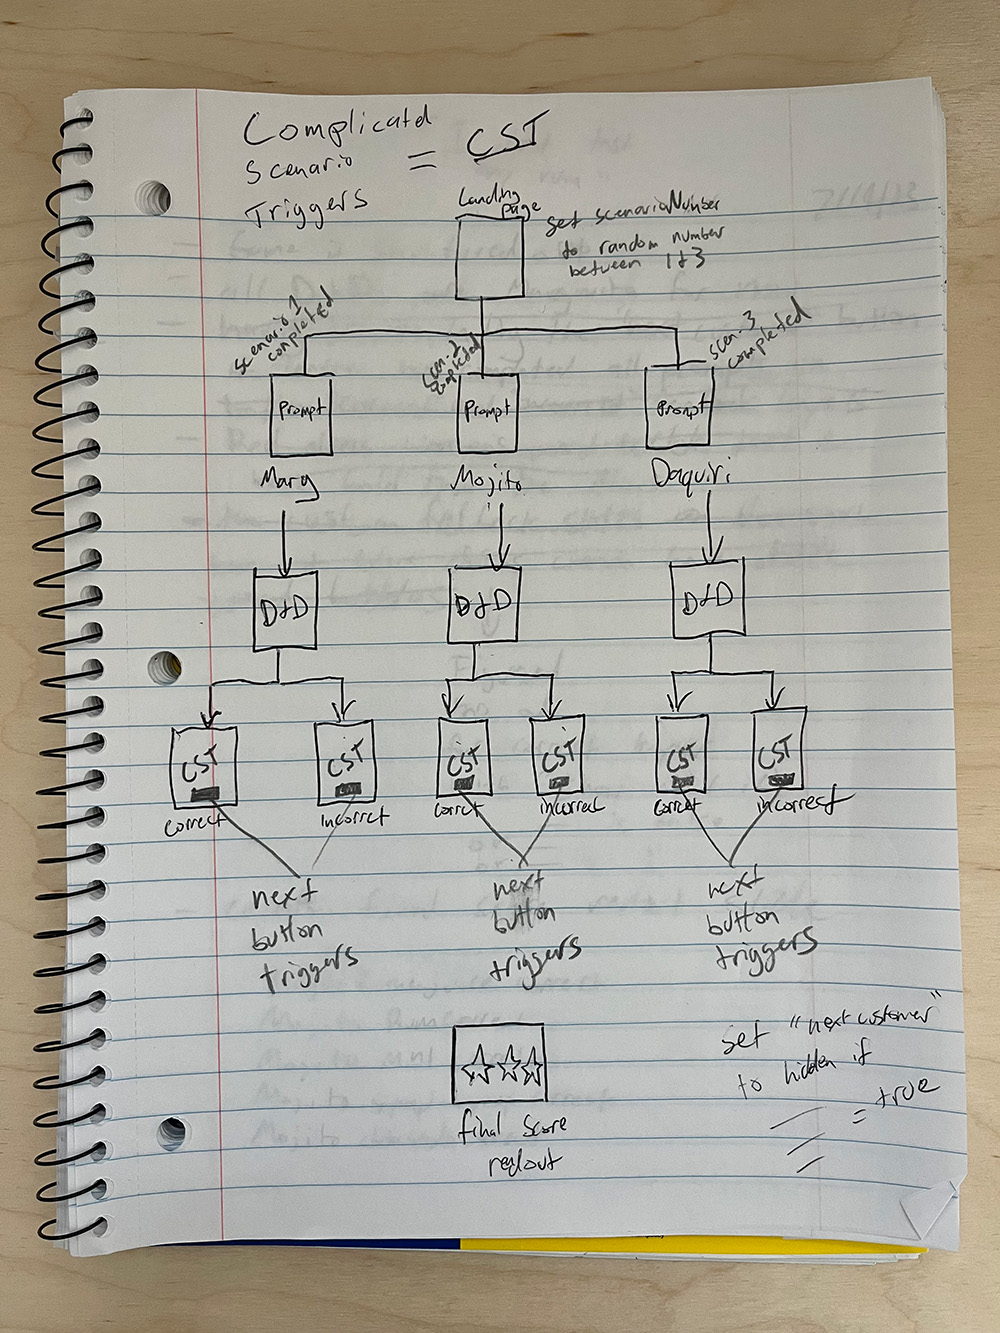 Complicatd
Scenario
Triggers
= CST
Landing
page
set scenarioNumber
to random number
between 1 & 3
scenario 1
completed
scen. 2
completed
scen. 3
completed
Prompt
Prompt
Prompt
Marg
Mojito
Daquiri
D&D
D&D
D&D
CST
CST
CST
CST
CST
CST
correct
incorrect
correct
incorrect
correct
incorrect
next
button
triggers
next
button
triggers
next
button
triggers
set "next customer"
to hidden if
= true
final score
readout